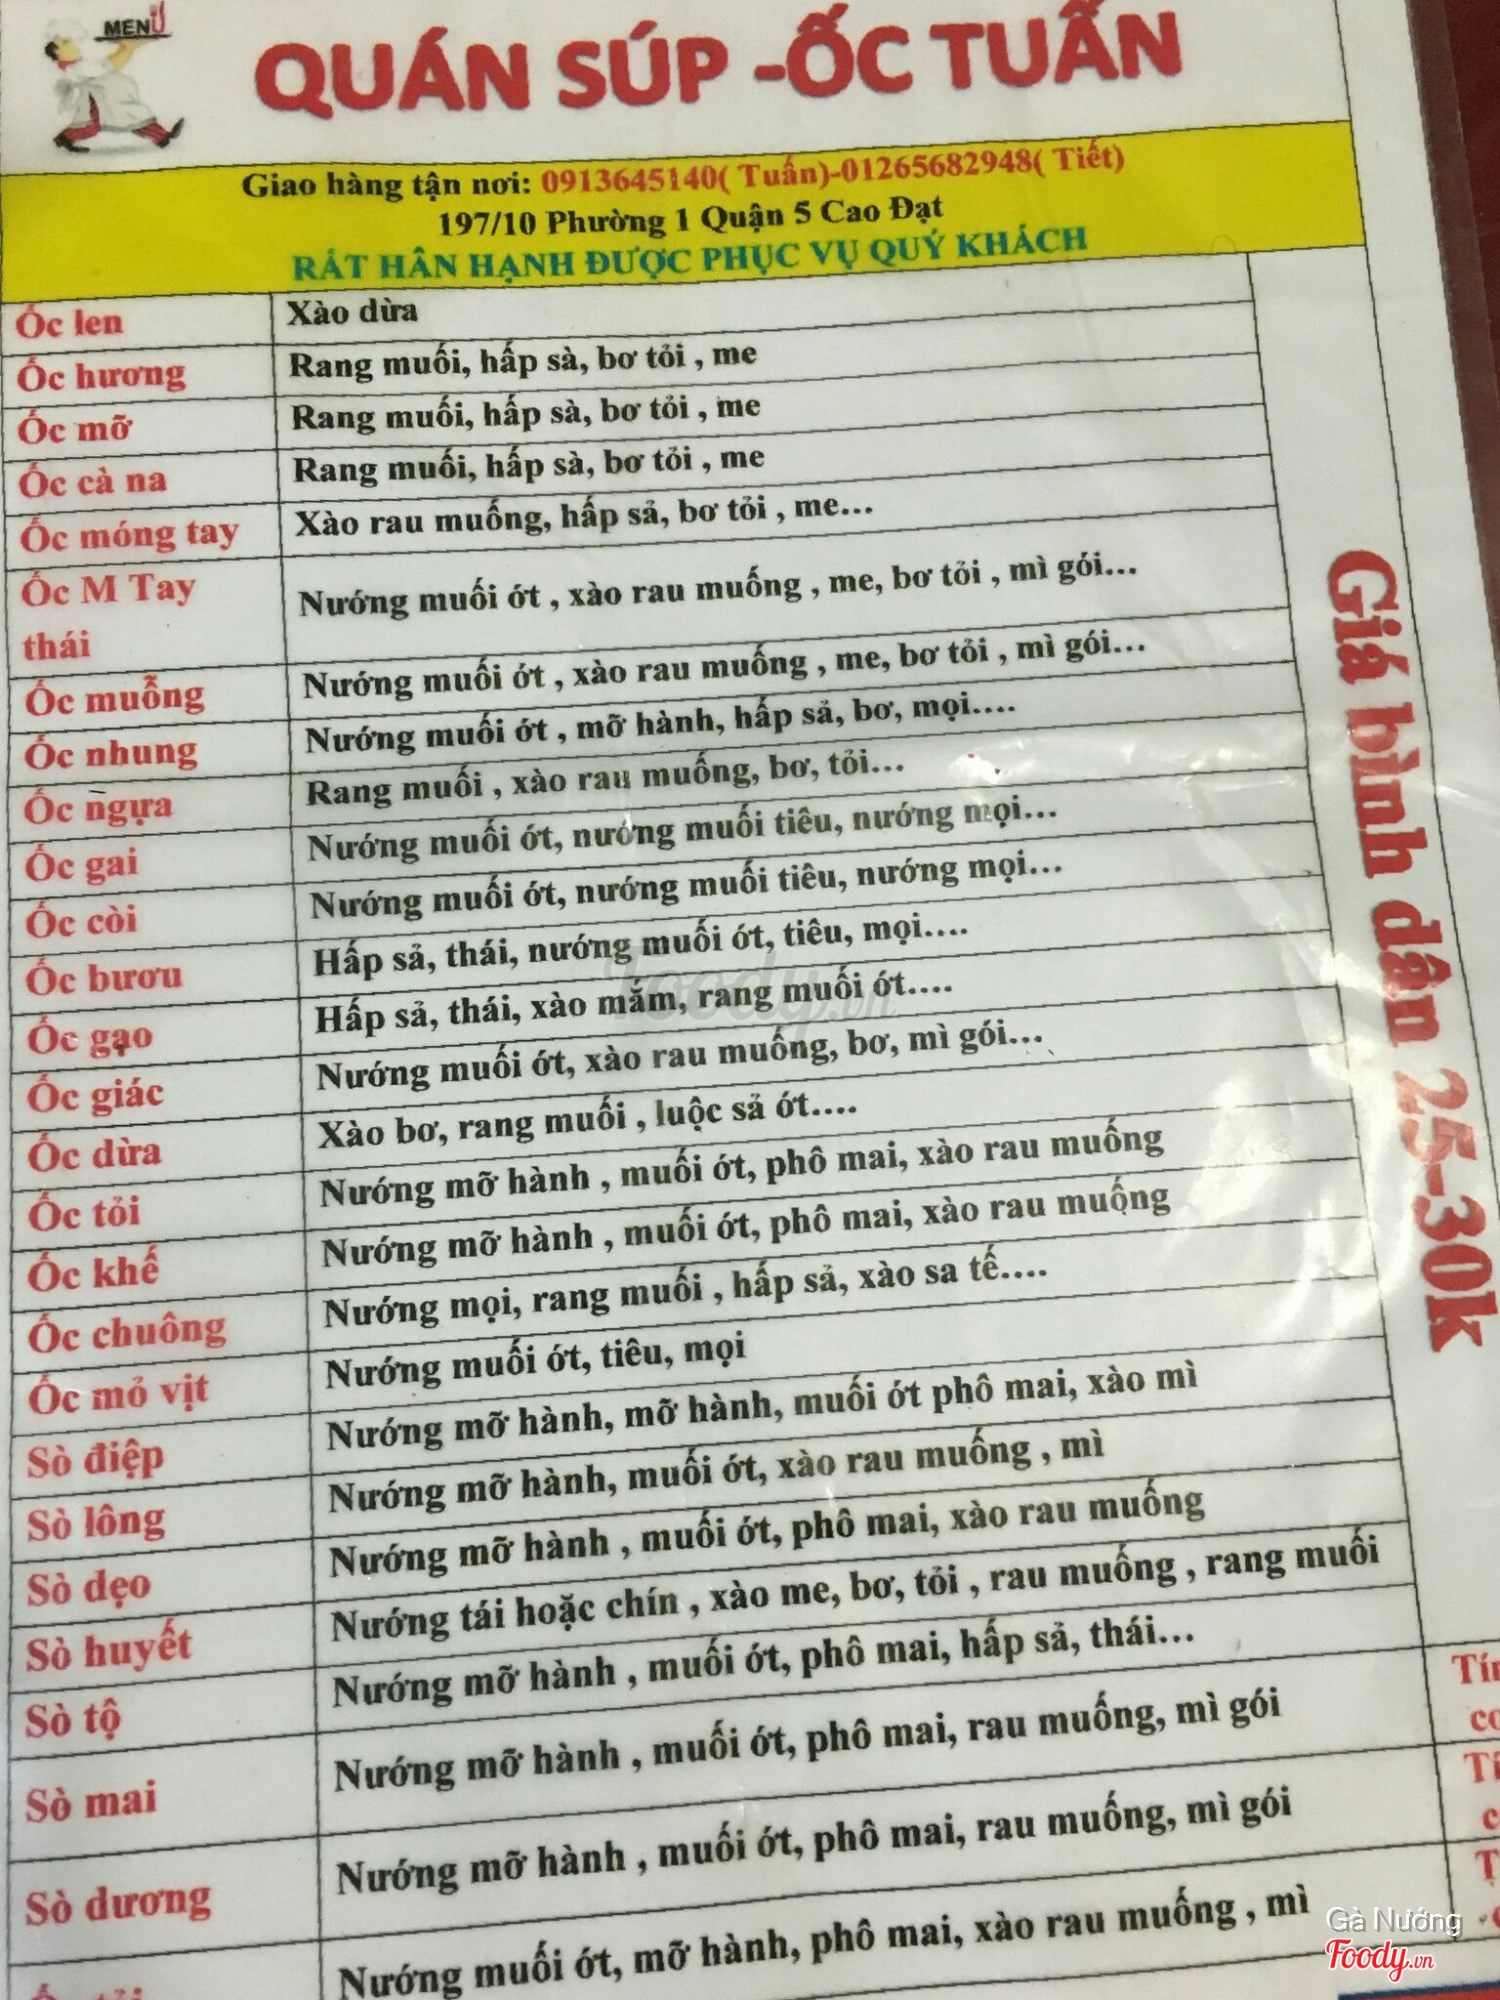 MENU
QUÁN SÚP -ỐC TUẤN
Giao hàng tận nơi: 0913645140( Tuấn)-01265682948( Tiết)
197/10 Phường 1 Quận 5 Cao Đạt
RẤT HÂN HẠNH ĐƯỢC PHỤC VỤ QUÝ KHÁCH
Ốc len Xào dừa
Ốc hương Rang muối, hấp sà, bơ tỏi , me
Ốc mỡ Rang muối, hấp sà, bơ tỏi , me
Ốc cà na Rang muối, hấp sà, bơ tỏi , me
Ốc móng tay Xào rau muống, hấp sả, bơ tỏi , me...
Ốc M Tay
thái
Nướng muối ớt , xào rau muống , me, bơ tỏi , mì gói...
Ốc muỗng Nướng muối ớt , xào rau muống , me, bơ tỏi , mì gói...
Ốc nhung Nướng muối ớt , mỡ hành, hấp sả, bơ, mọi....
Ốc ngựa Rang muối , xào rau muống, bơ, tỏi...
Ốc gai Nướng muối ớt, nướng muối tiêu, nướng mọi...
Ốc còi Nướng muối ớt, nướng muối tiêu, nướng mọi...
Ốc bươu Hấp sả, thái, nướng muối ớt, tiêu, mọi....
Ốc gạo Hấp sả, thái, xào mắm, rang muối ớt....
Ốc giác Nướng muối ớt, xào rau muống, bơ, mì gói...
Ốc dừa Xào bơ, rang muối , luộc sả ớt....
Ốc tỏi Nướng mỡ hành , muối ớt, phô mai, xào rau muống
Ốc khế Nướng mỡ hành , muối ớt, phô mai, xào rau muống
Ốc chuông Nướng mọi, rang muối , hấp sả, xào sa tế....
Ốc mỏ vịt Nướng muối ớt, tiêu, mọi
Sò điệp Nướng mỡ hành, mỡ hành, muối ớt phô mai, xào mì
Sò lông Nướng mỡ hành, muối ớt, xào rau muống , mì
Sò dẹo Nướng mỡ hành , muối ớt, phô mai, xào rau muống
Sò huyết Nướng tái hoặc chín , xào me, bơ, tỏi , rau muống , rang muối
Sò tộ Nướng mỡ hành , muối ớt, phô mai, hấp sả, thái...
Sò mai Nướng mỡ hành , muối ớt, phô mai, rau muống, mì gói
Sò dương Nướng mỡ hành , muối ớt, phô mai, rau muống, mì gói
Nướng muối ớt, mỡ hành, phô mai, xào rau muống , mì
Giá bình dân 25-30k
Foody.vn
Gà Nướng
Foody.vn